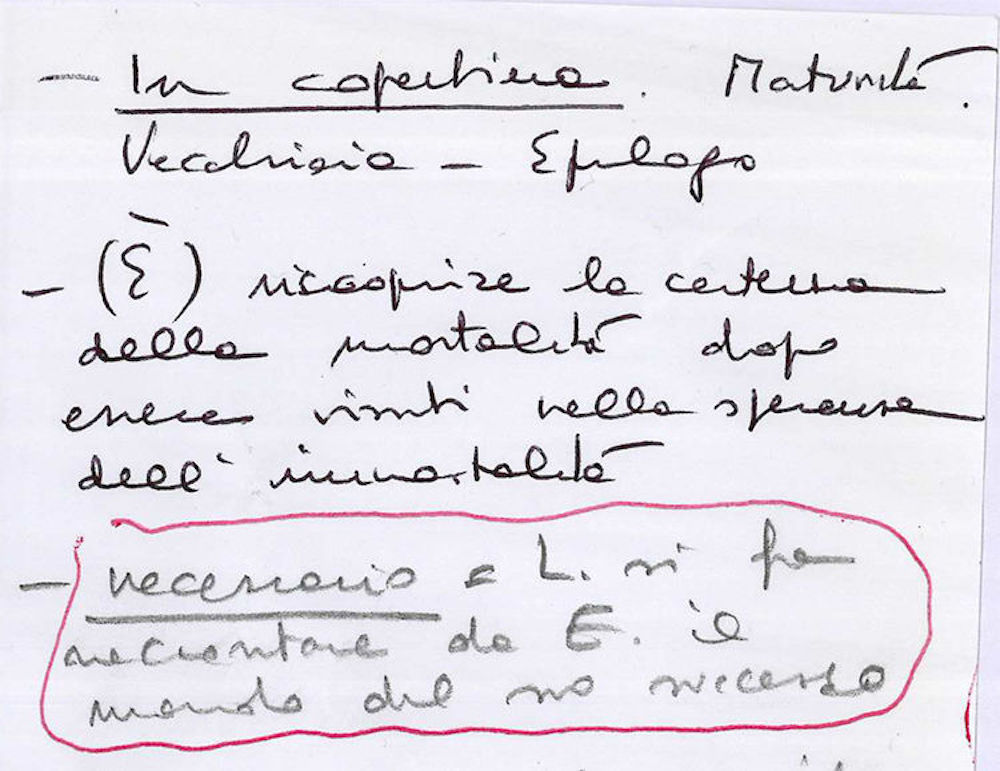 — In copertina. Maturità.
Vecchiaia — Epilogo
— (È) riscoprire la certezza
della mortalità dopo
essere vissuti nella speranza
dell'immortalità
— necessario = L. si fa
raccontare da E. il
mondo del suo successo